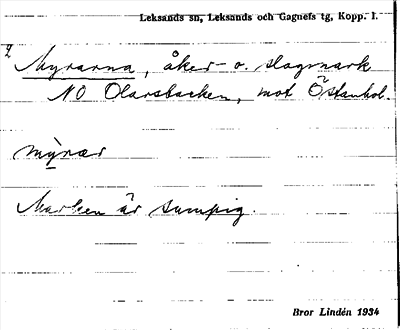 Leksands sn, Leksands och Gagnefs tg, Kopp. l.
Myrarna, åker- o. slagmark
NO Olarsbacken, mot Östanhol.
mỳrar
Marken är sumpig.
Bror Lindén 1934